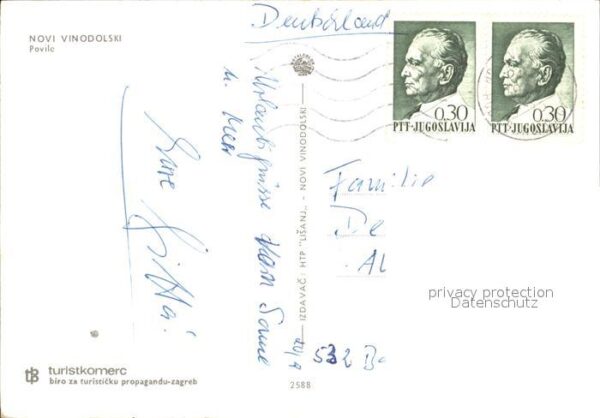 NOVI VINODOLSKI
Povile
Deutschland
0.30
PTT-JUGOSLAVIJA
0.30
PTT-JUGOSLAVIJA
Urlaubsgrüsse von Sonne
u. Meer
Eure Gitta
IZDAVAČ: HTP "LIŠANJ" - NOVI VINODOLSKI
Familie
De
Al
532 B
privacy protection
Datenschutz
tb turistkomerc
biro za turističku propagandu-zagreb
2588